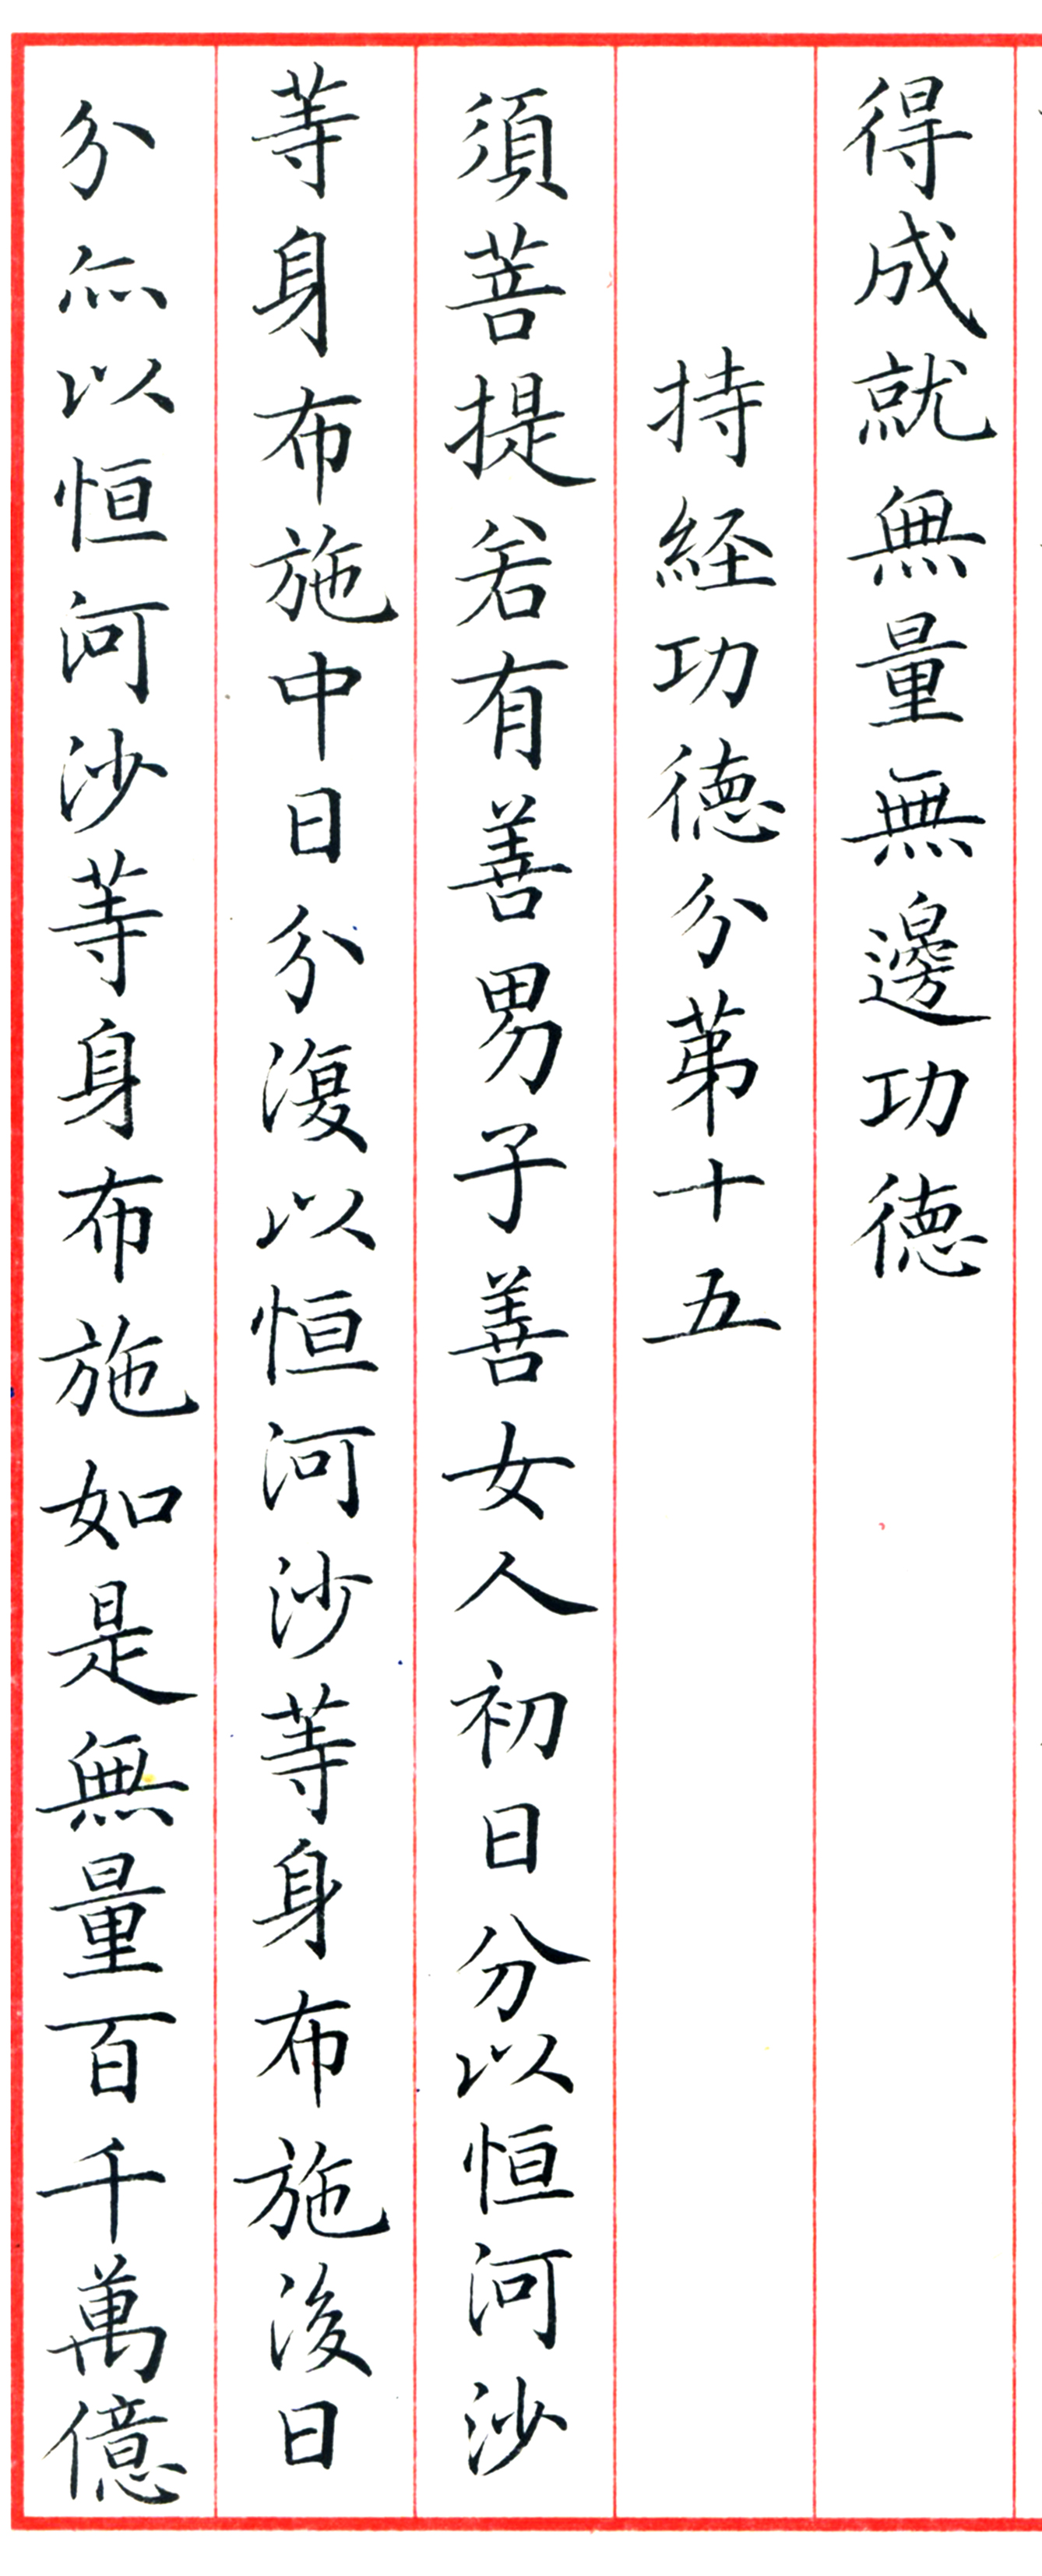 得成就無量無邊功德
持経功德分第十五
須菩提若有善男子善女人初日分以恒河沙
等身布施中日分復以恒河沙等身布施後日
分亦以恒河沙等身布施如是無量百千萬億